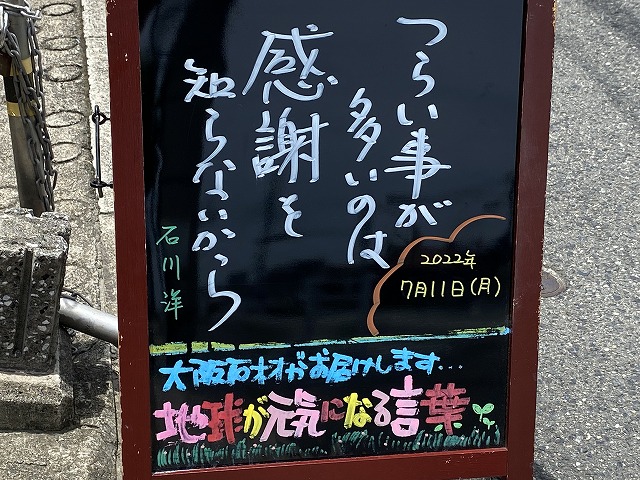 つらい事が
多いのは
感謝を
知らないから
石川 洋
2022年
7月11日(月)
大阪石材がお届けします...
地球が元気になる言葉